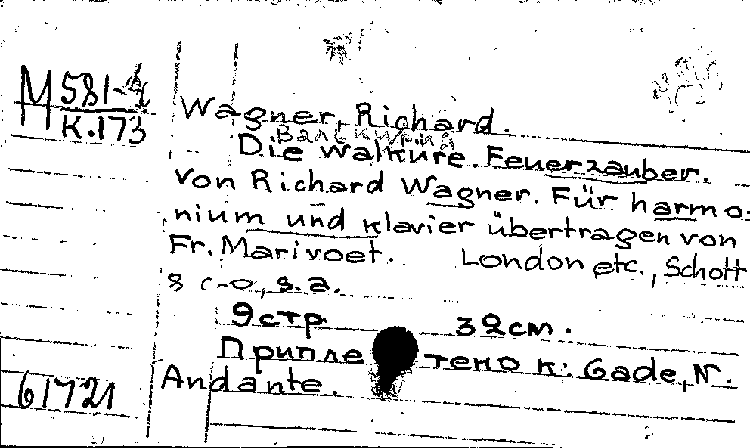 М 581-4
К.173
Wagner, Richard.
Валькирия
Die Walküre. Feuerzauber.
von Richard Wagner. Für harmo-
nium und Klavier übertragen von
Fr. Marivoet. London etc., Schott
s. a.
9 стр 32 cm.
Припле тено к: Gade, N.
Andante.
61721